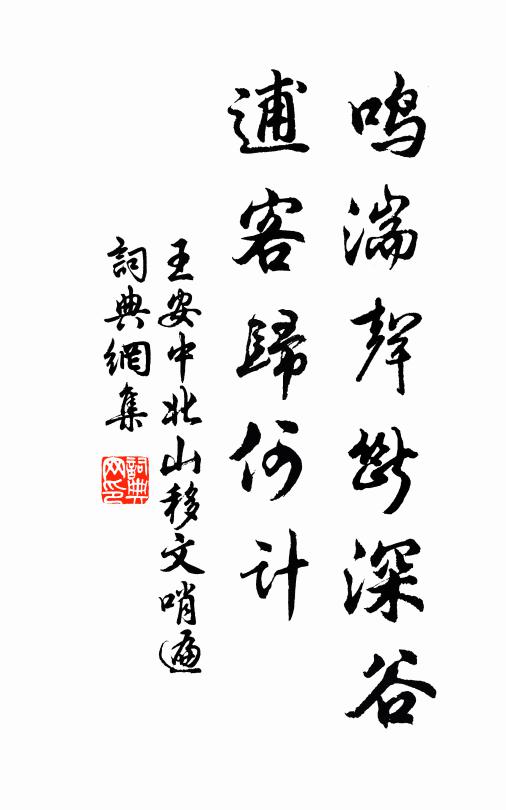 鸣湍聲断深谷
逋客歸何计
王安中北山移文哨遍
詞典網集
詞典网印